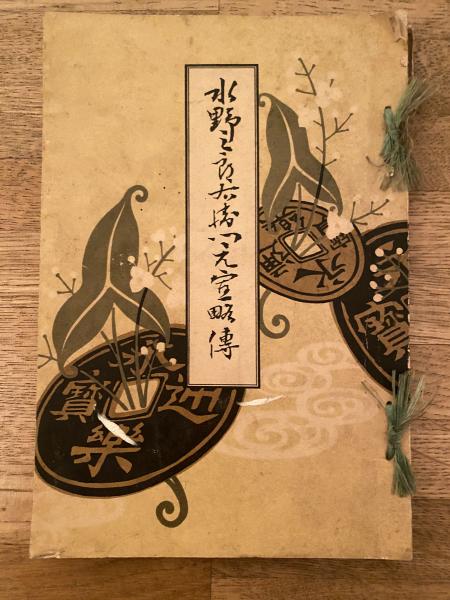 水野三郎右衛門元宣略傳
永樂通寶
寶